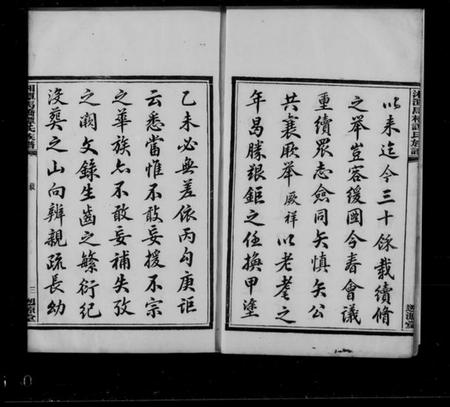 以来迄今三十餘载續脩
之舉豈容後圖今春會議
重續眾志僉同矢慎矢公
共襄厥舉厥祥以老耄之
年曷勝艱鉅之任換甲塗
乙未必無差依丙勾庚詎
云悉當惟不敢妄援不宗
之華族亦不敢妄補失攷
之潤文錄生齒之繁衍紀
沒葬之山向辨親疏長幼
三